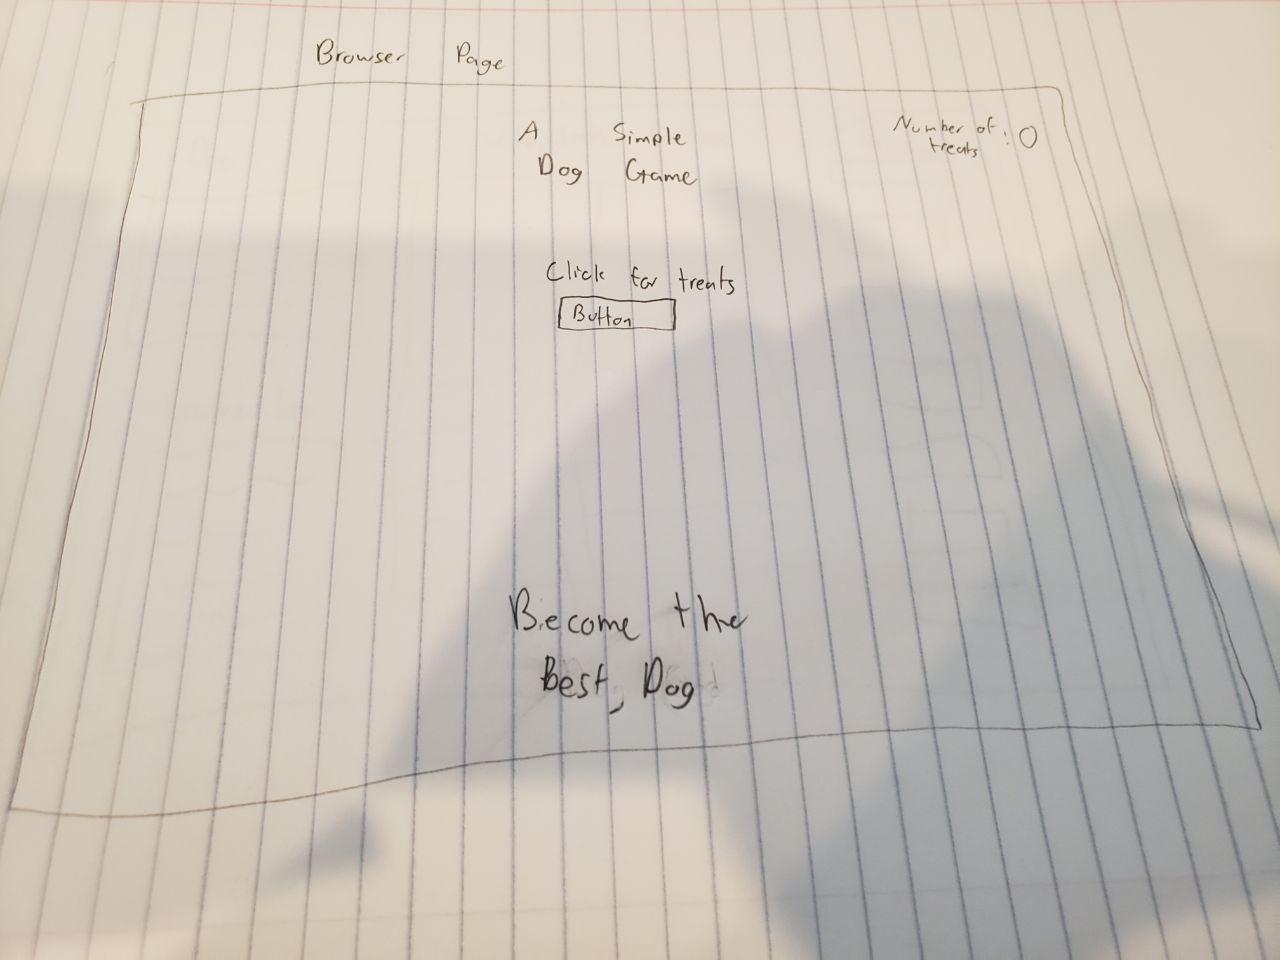 Browser Page
A Simple
Dog Game
Number of
treats : 0
Click for treats
Button
Become the
Best, Dog